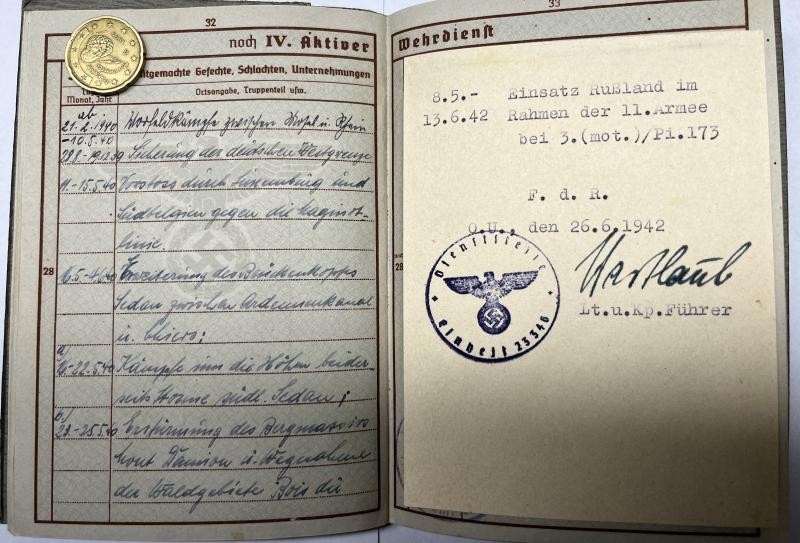 32
noch IV. Aktiver
Mitgemachte Gefechte, Schlachten, Unternehmungen
Monat, Jahr
Ortsangabe, Truppenteil usw.
ab
21.2.1940 Vorfeldkämpfe zwischen Mosel u. Rhein
-10.5.40
28.8.-19.12.39 Sicherung der deutschen Westgrenze
11.-15.5.40 Vorstoss durch Luxemburg und
Südbelgien gegen die Maginot-
linie.
28
16.5.-4.6.40 Erweiterung des Brückenkopfes
Sedan zwischen Ardennenkanal
u. Chiers;
a)
16.-22.5.40 Kämpfe um die Höhen beider-
seits Stonne südl. Sedan;
b)
23.-25.5.40 Erstürmung des Bergmassivs
Mont Damion u. Wegnahme
der Waldgebiete Bois du
33
Wehrdienst
8.5.- Einsatz Rußland im
13.6.42 Rahmen der 11.Armee
bei 3.(mot.)/Pi.173
F. d. R.
O.U., den 26.6.1942
Dienststelle
Einheit 23546
Hartlaub
Lt.u.Kp.Führer
28